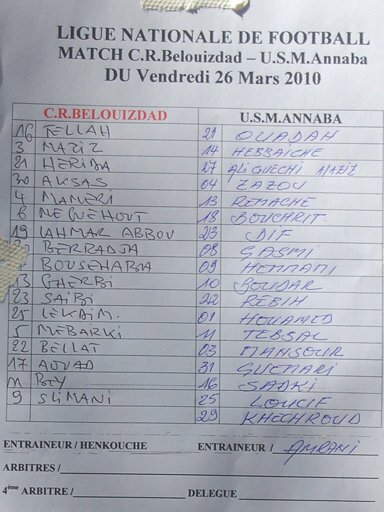 LIGUE NATIONALE DE FOOTBALL
MATCH C.R.Belouizdad – U.S.M.Annaba
DU Vendredi 26 Mars 2010
C.R.BELOUIZDAD U.S.M.ANNABA
16 FELLAH 21 OUADAH
3 MAZIZ 14 HEBBAICHE
21 HERIDA 27 ALI GUECHI
30 AKSAS 04 ZAZOU
4 MAMERI 13 REMACHE
6 NEGUEHOUT 18 BOUCHRIT
19 LAHMAR ABBOU 23 DIF
BERRADJA 08 GASMI
BOUSEHABA 09 HEMMAMI
13 GHERBI 10 BOUDAR
23 SAIBI 22 REBIH
25 LEKDIM. 01 HOUAMED
5 MEBARKI 11 TEBBAL
22 BELLAT 03 MANSOUR
17 AOUAD 31 GUEMARI
11 BEY 16 SADKI
9 SLIMANI 25 LOUCIF
29 KHOHROUD
ENTRAINEUR / HENKOUCHE ENTRAINEUR / AMRANI
ARBITRES /
4ème ARBITRE / DELEGUE